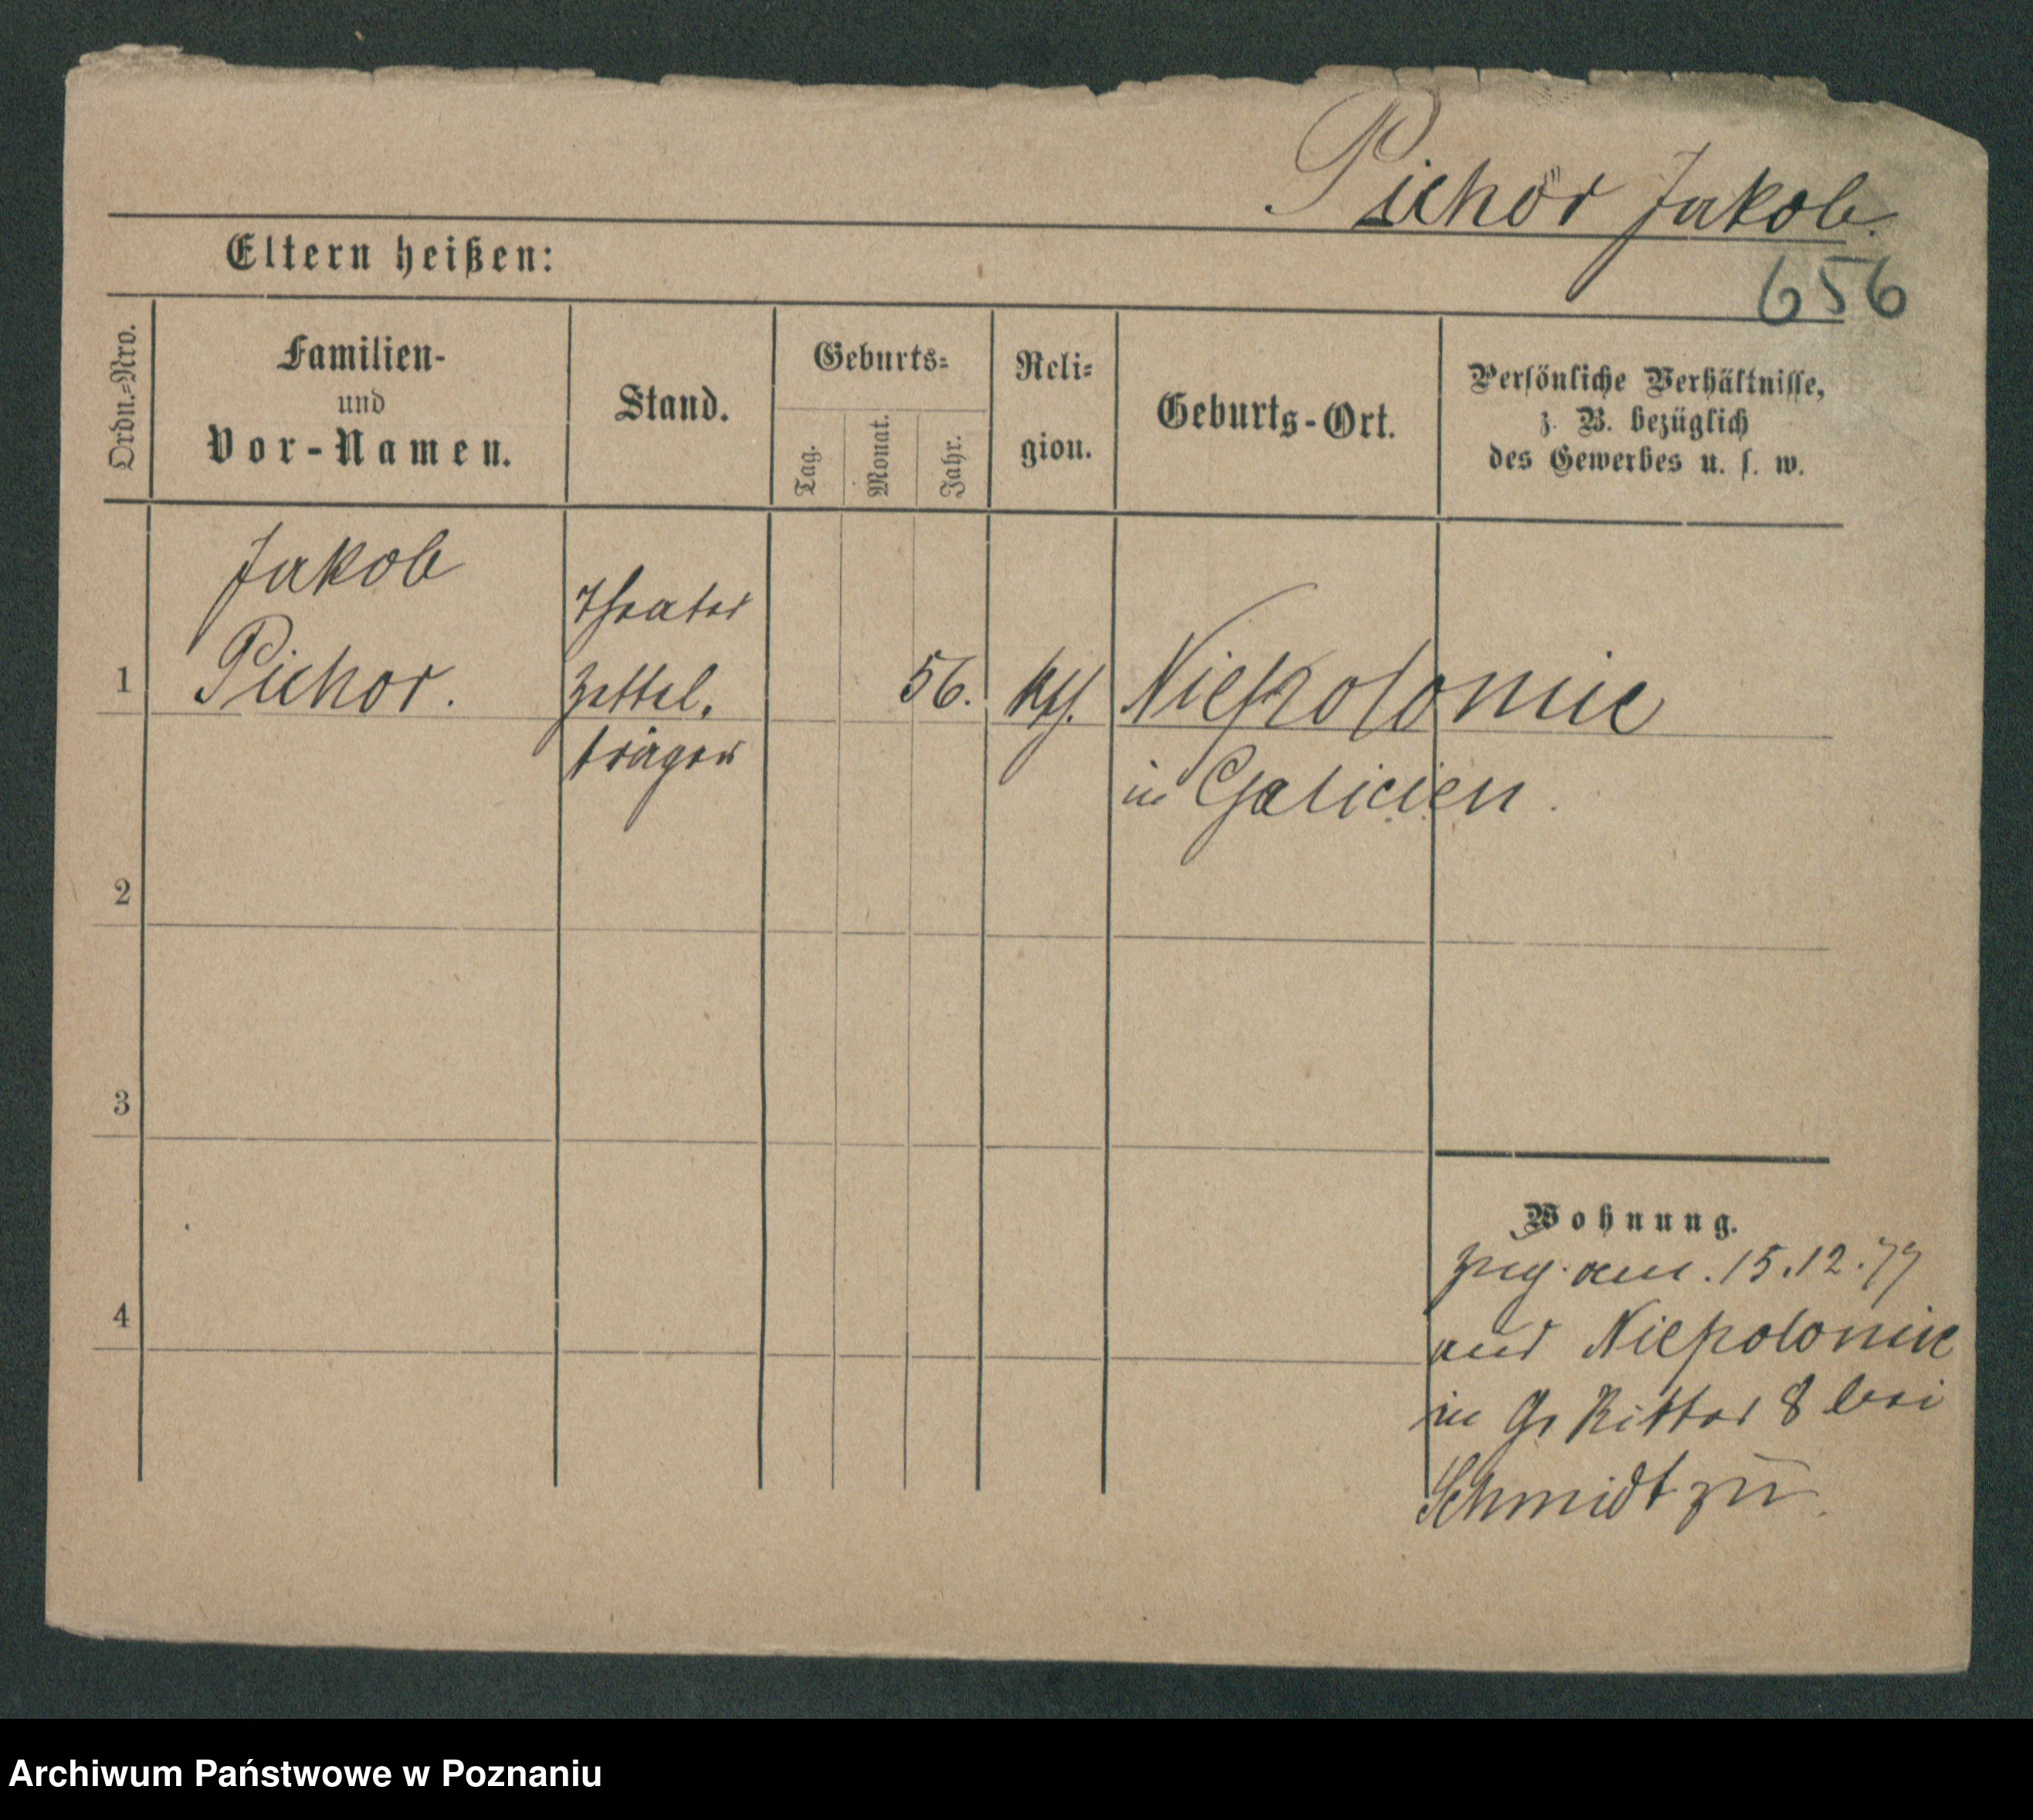 Pichor Jakob.
656
Eltern heißen:
Ordn.-Nro.
Familien-
und
Vor-Namen.
Stand.
Geburts-
Tag.
Monat.
Jahr.
Reli-
gion.
Geburts-Ort.
Persönliche Verhältnisse,
z. B. bezüglich
des Gewerbes u. s. w.
Jakob
Pichor.
Theater
Zettel,
träger
1
56.
Niepolomie
in Galicien.
2
3
4
Wohnung.
Zug. am. 15.12.77
aus Niepolomie
in Gr Ritter 8 bei
Schmidt zu.
Archiwum Państwowe w Poznaniu